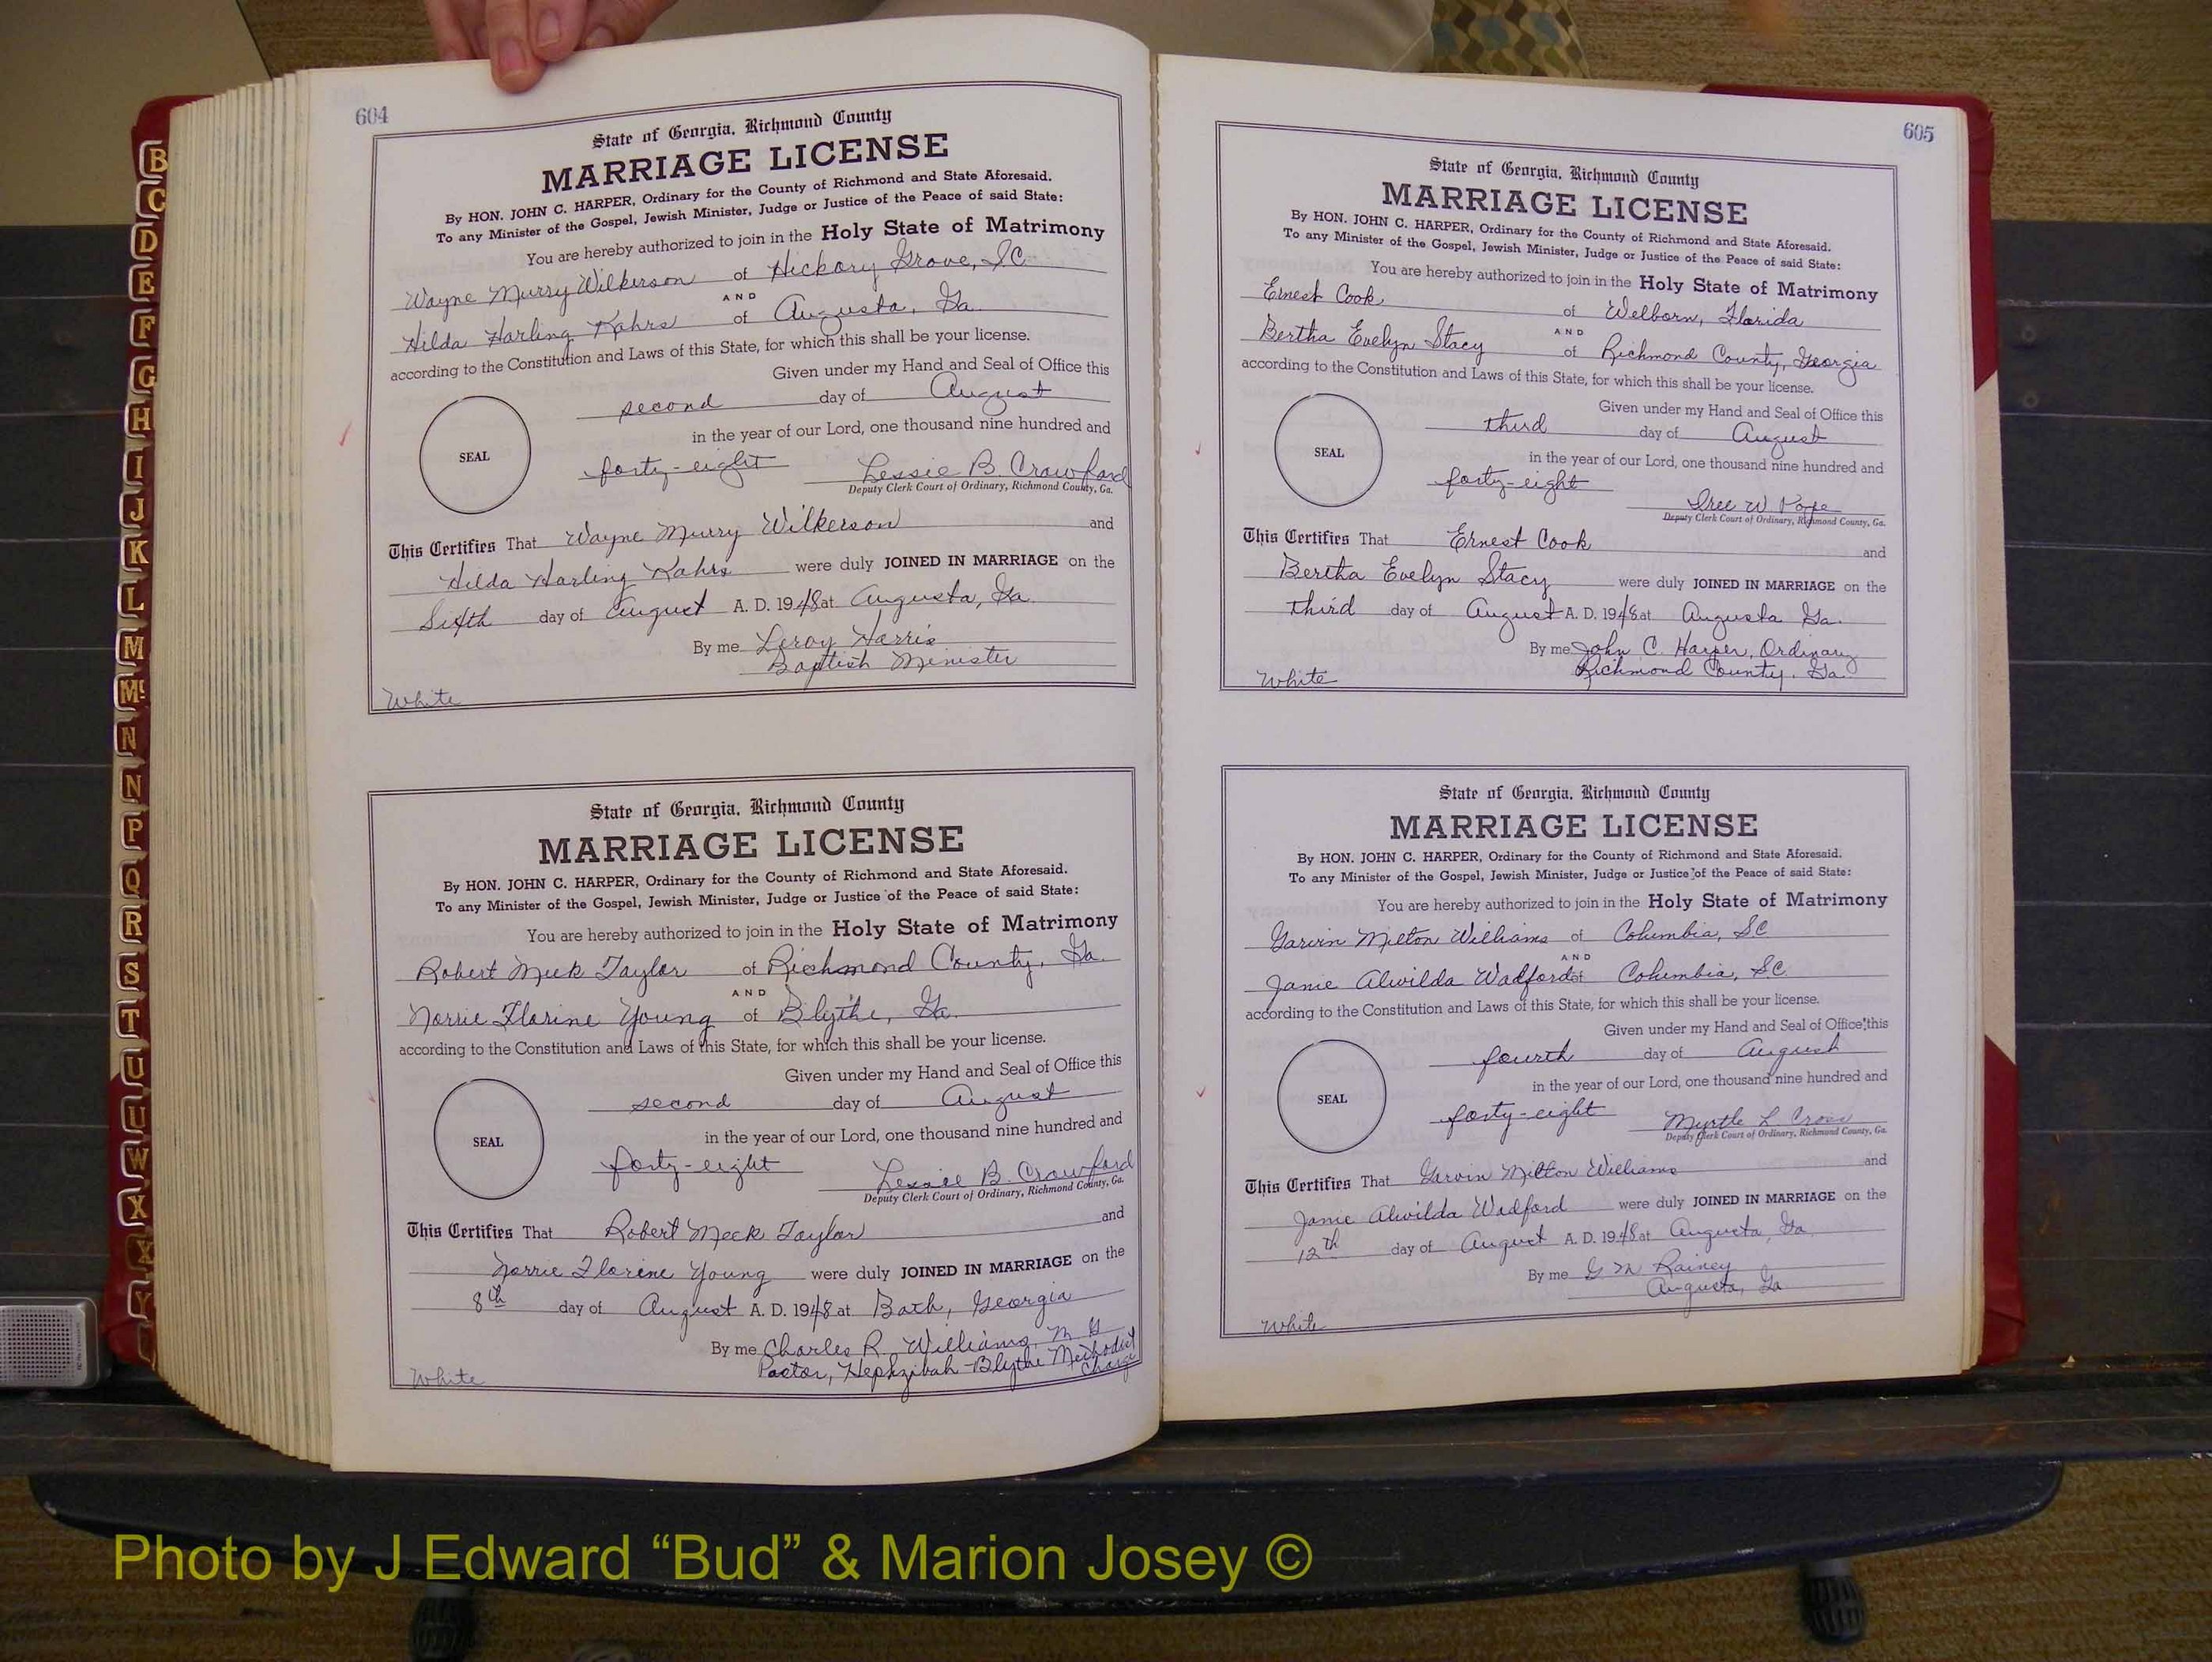 B
C
D
E
F
G
H
I
J
K
L
M
Mc
N
N
P
Q
R
S
T
U
U
W
X
X
Y
604
State of Georgia, Richmond County
MARRIAGE LICENSE
By HON. JOHN C. HARPER, Ordinary for the County of Richmond and State Aforesaid.
To any Minister of the Gospel, Jewish Minister, Judge or Justice of the Peace of said State:
You are hereby authorized to join in the Holy State of Matrimony
Wayne Murry Wilkerson of Hickory Grove, SC
AND
Hilda Harling Kahrs of Augusta, Ga.
according to the Constitution and Laws of this State, for which this shall be your license.
Given under my Hand and Seal of Office this
second day of August
in the year of our Lord, one thousand nine hundred and
SEAL
forty-eight Lessie B. Crawford
Deputy Clerk Court of Ordinary, Richmond County, Ga.
This Certifies That Wayne Murry Wilkerson and
Hilda Harling Kahrs were duly JOINED IN MARRIAGE on the
Sixth day of August A. D. 1948 at Augusta, Ga.
By me Leroy Harris
Baptish Minister
White
State of Georgia, Richmond County
MARRIAGE LICENSE
By HON. JOHN C. HARPER, Ordinary for the County of Richmond and State Aforesaid.
To any Minister of the Gospel, Jewish Minister, Judge or Justice of the Peace of said State:
You are hereby authorized to join in the Holy State of Matrimony
Robert Meck Taylor of Richmond County, Ga.
AND
Norrie Florine Young of Blythe, Ga.
according to the Constitution and Laws of this State, for which this shall be your license.
Given under my Hand and Seal of Office this
second day of August
in the year of our Lord, one thousand nine hundred and
SEAL
forty-eight Lessie B. Crawford
Deputy Clerk Court of Ordinary, Richmond County, Ga.
This Certifies That Robert Meck Taylor and
Norrie Florine Young were duly JOINED IN MARRIAGE on the
8th day of August A. D. 1948 at Bath, Georgia
By me Charles R. Williams, M G
Pastor, Hephzibah-Blythe Methodist
Charge
White
605
State of Georgia, Richmond County
MARRIAGE LICENSE
By HON. JOHN C. HARPER, Ordinary for the County of Richmond and State Aforesaid.
To any Minister of the Gospel, Jewish Minister, Judge or Justice of the Peace of said State:
You are hereby authorized to join in the Holy State of Matrimony
Ernest Cook of Welborn, Florida
AND
Bertha Evelyn Stacy of Richmond County, Georgia
according to the Constitution and Laws of this State, for which this shall be your license.
Given under my Hand and Seal of Office this
third day of August
in the year of our Lord, one thousand nine hundred and
SEAL
forty-eight W Pope
Deputy Clerk Court of Ordinary, Richmond County, Ga.
This Certifies That Ernest Cook and
Bertha Evelyn Stacy were duly JOINED IN MARRIAGE on the
third day of August A. D. 1948 at Augusta Ga.
By me John C. Harper, Ordinary
Richmond County, Ga.
White
State of Georgia, Richmond County
MARRIAGE LICENSE
By HON. JOHN C. HARPER, Ordinary for the County of Richmond and State Aforesaid.
To any Minister of the Gospel, Jewish Minister, Judge or Justice of the Peace of said State:
You are hereby authorized to join in the Holy State of Matrimony
Garvin Milton Williams of Columbia, SC
AND
Janie Alwilda Wadford of Columbia, SC
according to the Constitution and Laws of this State, for which this shall be your license.
Given under my Hand and Seal of Office this
fourth day of August
in the year of our Lord, one thousand nine hundred and
SEAL
forty-eight Myrtle L. Cross
Deputy Clerk Court of Ordinary, Richmond County, Ga.
This Certifies That Garvin Milton Williams and
Janie Alwilda Wadford were duly JOINED IN MARRIAGE on the
12th day of August A. D. 1948 at Augusta, Ga.
By me G M Rainey
Augusta, Ga
White
Photo by J Edward “Bud” & Marion Josey ©